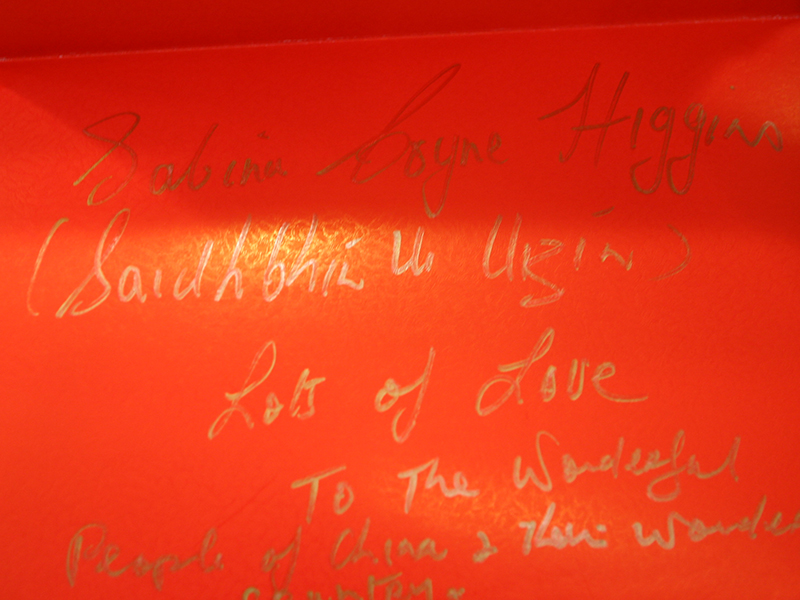 Sabina Coyne Higgins
(Saidhbhín Uí Uigín)
Lots of Love
To The Wonderful
People of China & Their Wonder
country